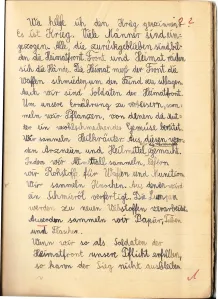 Wie helfe ich den Krieg gewinnen?
Es ist Krieg. Viele Männer sind ein-
gezogen. Alle, die zurückgeblieben sind bil-
den die Heimatfront. Front und Heimat reichen
sich die Hände. Die Heimat muß der Front die
Waffen schmieden, um den Feind zu schlagen.
Auch wir sind Soldaten der Heimatfront.
Um unsere Ernährung zu verbessern, sam-
meln wir Pflanzen, von denen die Mut-
ter ein wohlschmeckendes Gemüse bereitet.
Wir sammeln Heilkräuter, aus diesen wer-
den Arzneien und Heilmittel gemacht.
Indem wir Altmetall sammeln, liefern
wir Rohstoffe für Waffen und Munition.
Wir sammeln Knochen. Aus denen wird
ein Schmieröl verfertigt. Die Lumpen
werden zu neuen Webstoffen verarbeitet.
Außerdem sammeln wir Papier,
und Flaschen.
Wenn wir so als Soldaten der
Heimatfront unsere Pflicht erfüllen,
so kann der Sieg nicht ausbleiben.